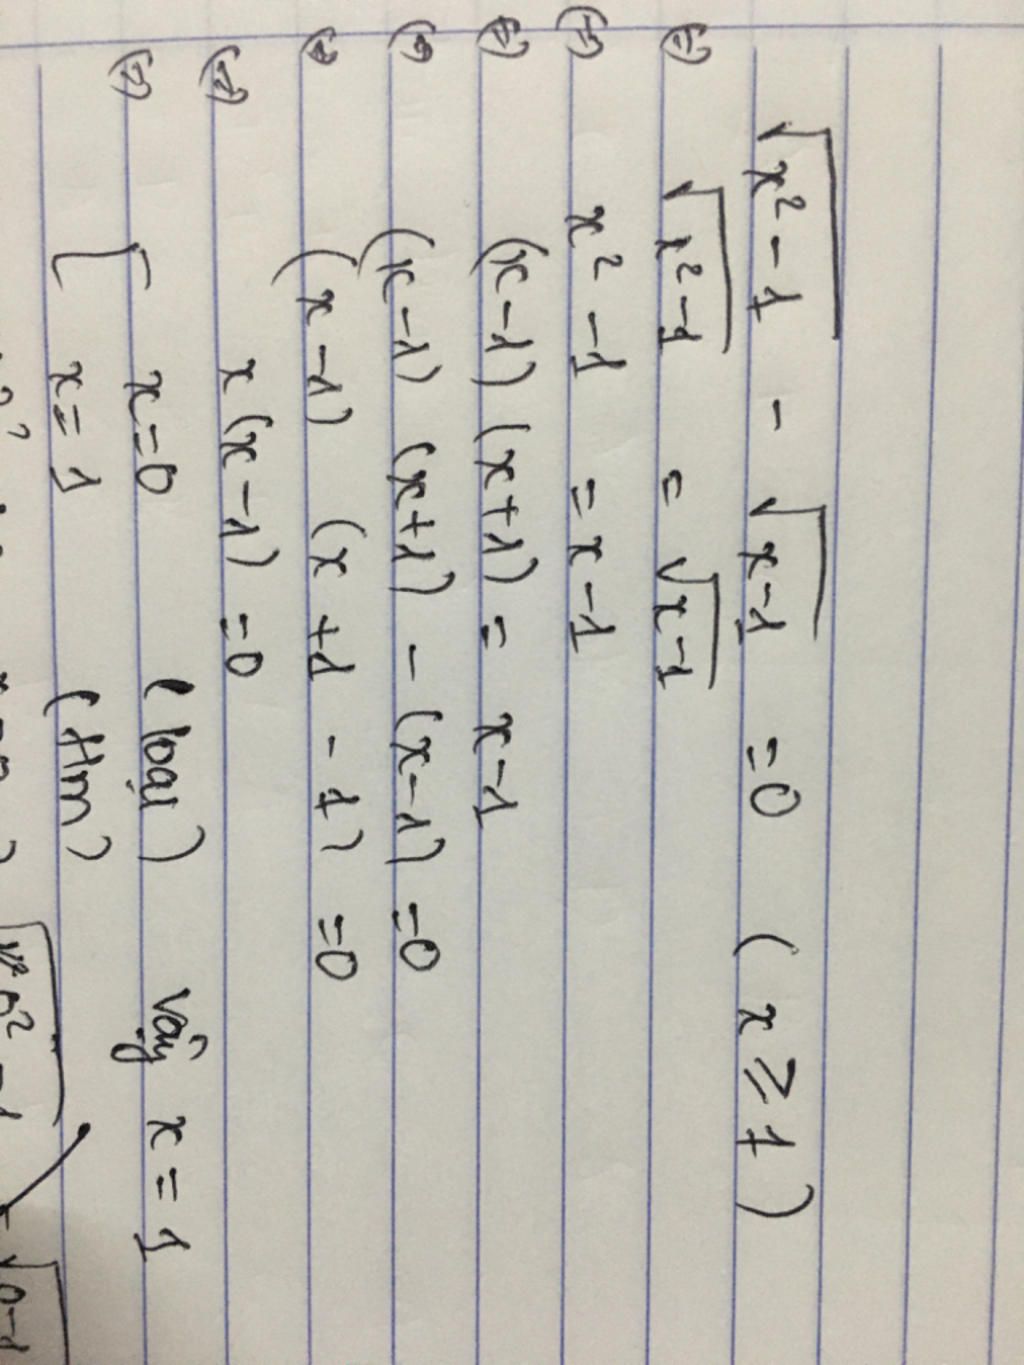 √(x² - 1) - √(x-1) = 0 (x ≥ 1)
(=) √(x²-1) = √(x-1)
(=) x² - 1 = x - 1
(=) (x-1) (x+1) = x-1
(=) (x-1) (x+1) - (x-1) = 0
(=) (x-1) (x+1 - 1) = 0
(=) x(x-1) = 0
(=) [ x=0 (loại) Vậy x = 1
[ x = 1 (tm)